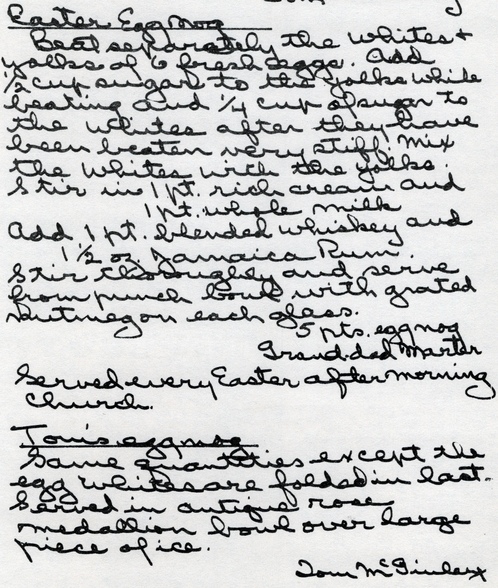 Easter Eggnog
Beat separately the whites +
yolks of 6 fresh eggs. Add
1/2 cup sugar to the yolks while
beating and 1/4 cup of sugar to
the whites after they have
been beaten very stiff. Mix
the whites with the yolks.
Stir in 1 pt. rich cream and
1 pt. whole milk
Add 1 pt. blended whiskey and
1 1/2 oz Jamaica Rum.
Stir thoroughly and serve
from punch bowl with grated
nutmeg on each glass.
5 pts. eggnog
Grand-dad Marter
Served every Easter after morning
Church.
Tom's eggnog
Same quantities except the
egg whites are folded in last.
Served in antique rose
medallion bowl over large
piece of ice.
Tom